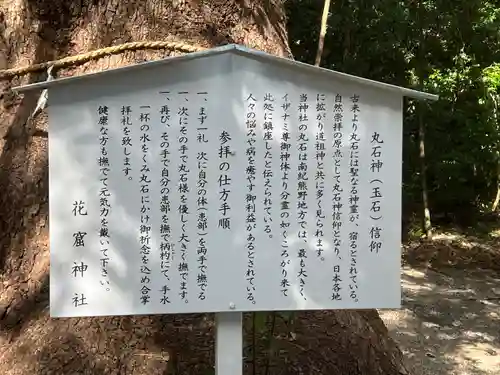 丸石神（玉石）信仰
古来より丸石には聖なる神霊が、宿るとされている。
自然崇拝の原点として丸石神信仰となり、日本各地
に拡がり道祖神と共に多く見られます。
当神社の丸石は南紀熊野地方では、最も大きく、
イザナミ尊御神体より分霊の如くころがり来て
此処に鎮座したと伝えられている。
人々の悩みや病を癒やす御利益があるとされている。
参拝の仕方手順
一、まず一礼　次に自分の体（患部）を両手で撫でる
一、次にその手で丸石様を優しく大きく撫でます。
一、再び、その手で自分の患部を撫で柄杓にて、手水
一杯の水をくみ丸石にかけ御祈念を込め合掌
拝礼を致します。
健康な方も撫でて元気力を戴いて下さい。
花窟神社